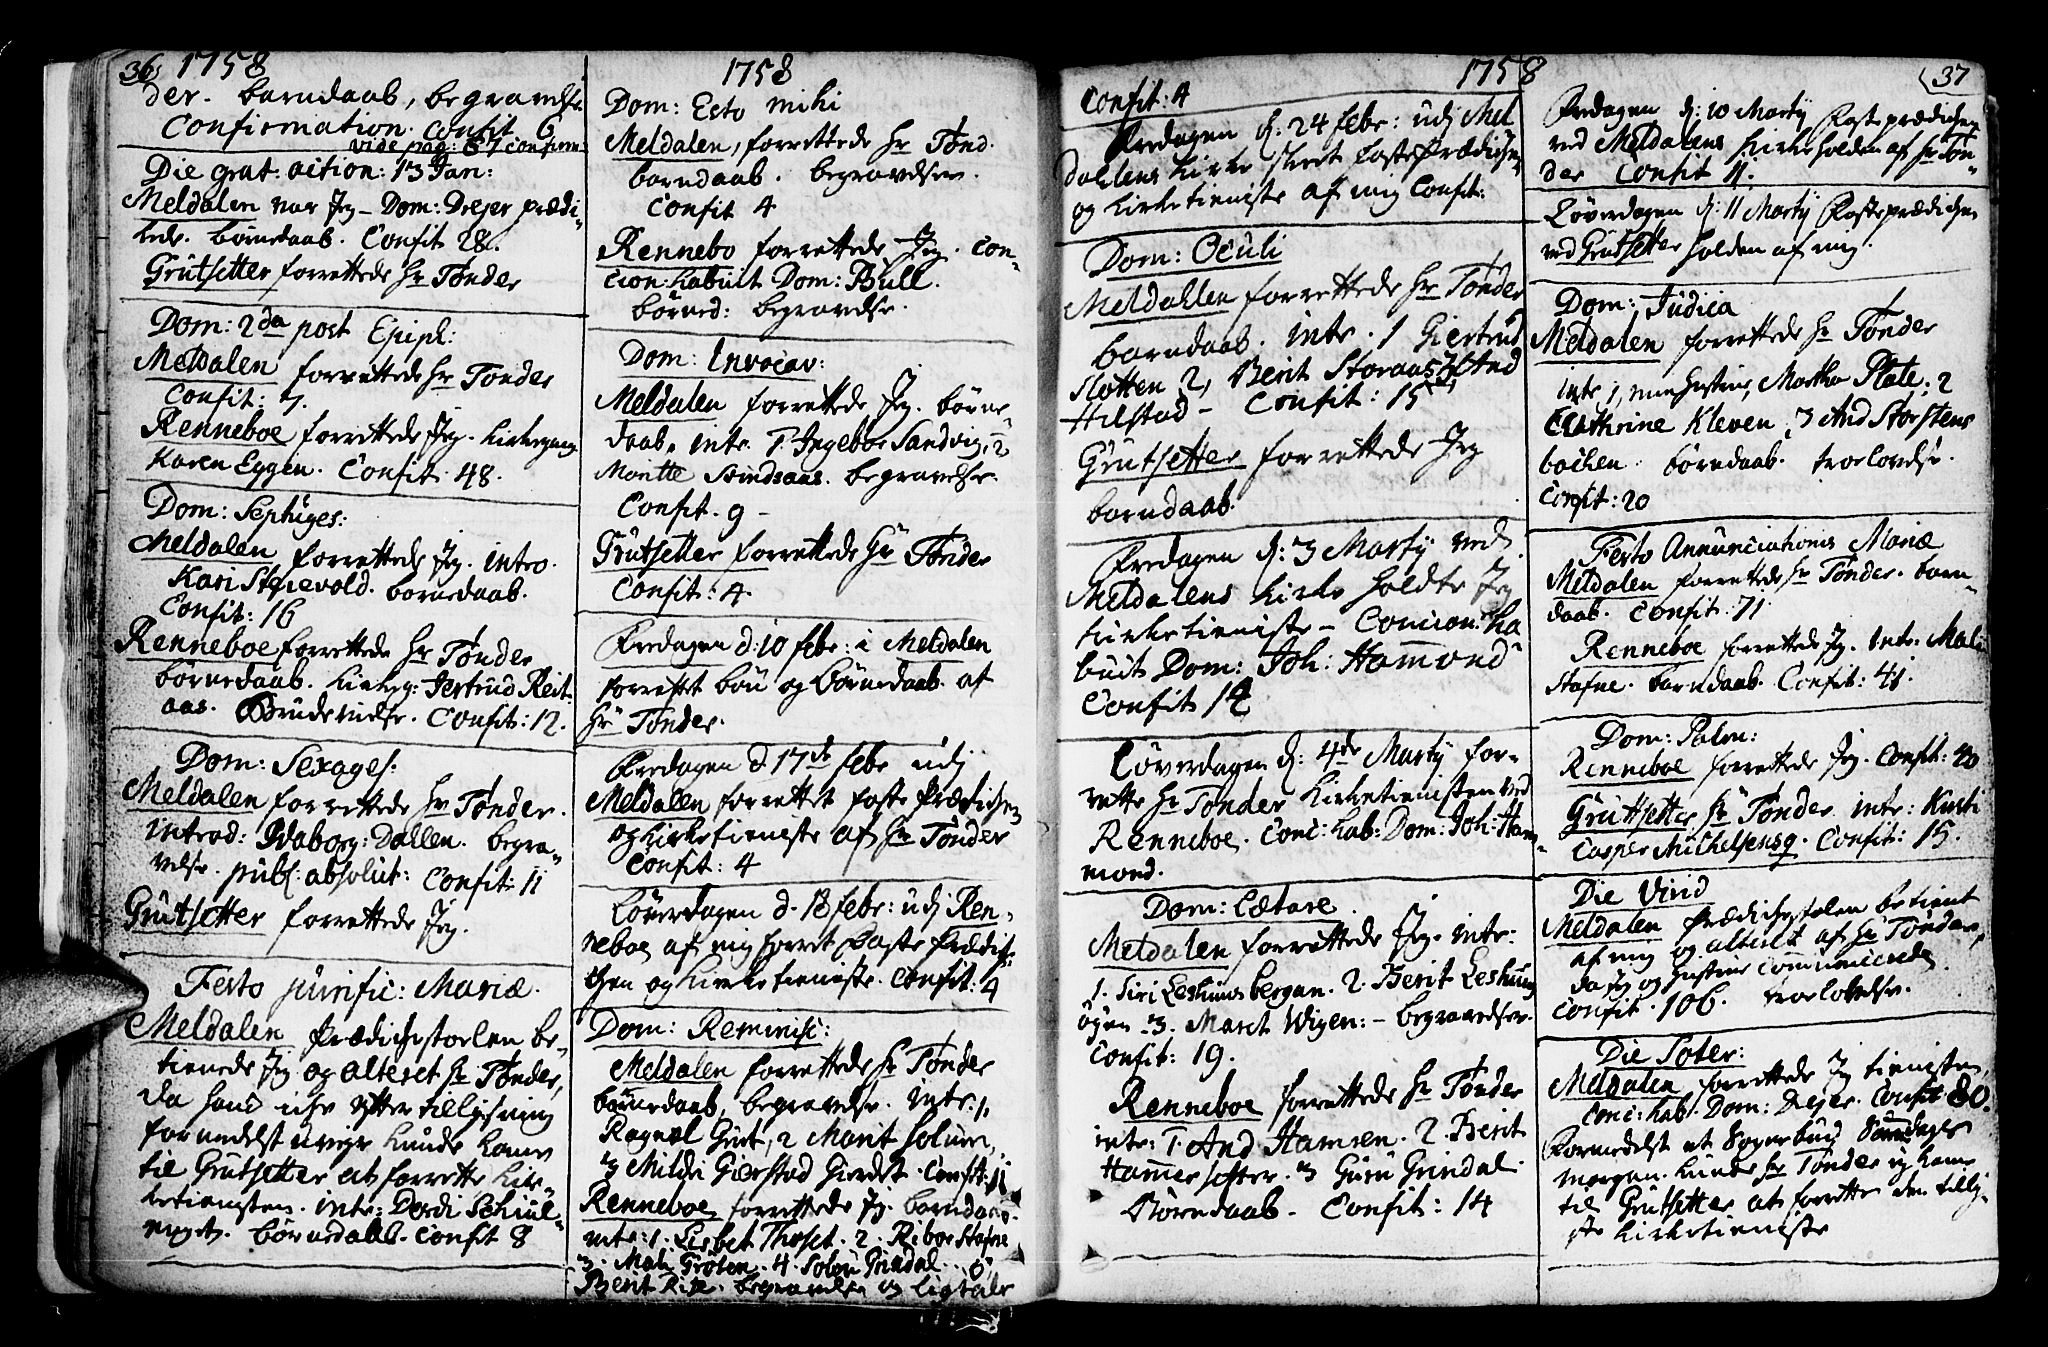 36 1758
der. barndaab, begravelse.
Confirmation. Confit 6
vide pag: 67 confirm:
Die grat. action: 13 Jan:
Meldalen var Jeg - Dom: Dreyer prædi-
kede. børnedaab. Confit 28.
Grutsetter forrettede Hr Tønder
Dom: 2da post Epiph:
Meldalen forrettede Hr Tønder
Confit: 7.
Renneboe forrettede Jeg. Kirkegang
Karen Eggen. Confit: 48.
Dom: Septuges:
Meldalen forrettede Jeg. intro.
Kari Stenevold. børnedaab.
Confit: 16
Renneboe forrettede Hr Tønder
børnedaab. Kirkeg: Jertrud Reit
aas. Brudevielse. Confit: 12.
Dom: Sexages:
Meldalen forrettede Hr Tønder.
introd: Ingborg: Dallen. begra-
velse. publ: absolut: Confit: 11
Grutsetter forrettede Jeg.
Festo purific: Mariæ.
Meldalen Prædichestoelen be-
tienede Jeg og alteret Hr Tønder,
da hand icke efter tillysning
formedelst urige kunde komme
til Grutsetter at forrette kir-
ketienesten. intr: Dordi Schiul-
nget. børnedaab. Confit 8
1758
Dom: Esto mihi
Meldalen, forrettede Hr Tønd.
barndaab. begravelse.
Confit 4
Rennebo forrettede Jeg. Con-
cion: habuit Dom: Bull.
børned: begravelse.
Dom: Invocav:
Meldalen forrettede Jeg. børne-
daab. intr. 1. Ingebor Sandvig, 2
Maritte Strindsaas. begravelse.
Confit. 9 -
Grutsetter forrettede Hr Tønder
Confit: 4.
Fredagen d: 10 febr: i Meldalen
forrettet bøn og børnedaab af
Hr Tønder.
Fredagen d 17de febr udj
Meldalen forrettet faste Prædichen
og kirketieniste af Hr Tønder
Confit: 4
Løverdagen d. 18 febr: udj Ren-
neboe af mig forret Faste Prædic-
hen og Kirketieniste. Confit: 4
Dom: Reminisc:
Meldalen forrettede Hr Tønder
børnedaab, begravelse. intr. 1.
Ragnel Grut, 2 Marit Solum,
3 Mildri Gierstad Gierdet. Confit: 11
Renneboe forrettede Jeg. barndaab.
intr: 1. Lisbet Thoset. 2. Ribor Stafne
3. Mali Grøten. 4. Solou Grindal. 5
Berit Rise. begravelse og ligtale
1758 37
Confit: 4
Fredagen d: 24 febr: udj Mel
dahlens kirke skeet Faste Prædichen
og kirketieniste af mig Confit:
Dom: Oculi
Meldahlen forrettede Hr Tønder
barndaab. intr. 1 Giertrud
Slotten 2, Berit Storaas 3 And
Hilstad - Confit: 15
Grutsetter forrettede Jeg
barndaab.
Fredagen d: 3 Martij ved
Meldalens kirke holdte Jeg
kirketieniste - Concion: ha
buit Dom: Joh: Hammond
Confit 14
Løverdagen d: 4de Martij for-
rette Hr Tønder kirketienesten ved
Renneboe. Conc: hab: Dom: Joh: Ham-
mond.
Dom: Lætare
Meldalen forrettede Jeg. intr:
1. Siri Leshuus bergan. 2. Berit Leshuug
øgen. 3. Maret Wigen: - begravelse.
Confit: 19.
Renneboe forrettede Hr Tønder
intr: 1. And Hamsen. 2. Berit
Hammersetter. 3 Guru Grindal.
Børndaab. Confit: 14
Fredagen d: 10 Martij Fasteprædichen
ved Meldalens kirke holden af Hr Tøn-
der Confit 11.
Løverdagen d: 11 Martij Fasteprædichen
ved Grutsetter holden af mig.
Dom: Judica
Meldalen forrettede Hr Tønder
intr 1, min Hustrue, Martha Plate, 2
Cathrine Kleven, 3 And Storstens
bachen. børndaab. troelovelse.
Confit: 20
Festo Annunciationis Mariæ
Meldalen forrettede Hr Tønder. barn-
daab. Confit: 71.
Renneboe forrettede Jeg. intr: Mali
Stafne. barndaab. Confit: 41.
Dom: Palm:
Renneboe forrettede Jeg. Confit: 40
Grutsetter Hr Tønder. intr: Kirsti
Casper Michelsens q. Confit: 15.
Die Virid
Meldalen Prædichestolen betient
af mig og alteret af Hr Tønder,
da Jeg og Hustrue communicerede.
Confit. 106. troelovelse.
Die Soter:
Meldalen forrettede Jeg tienesten,
Conc: hab. Dom: Dreyer. Confit 80.
Formedelst et Sognebud Søndages
morgen kunde Hr Tønder ej komme
til Grutsetter at forrette den tilly-
ste kirketieniste